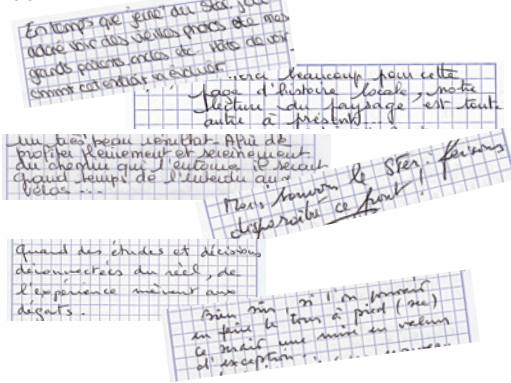 En temps que jeune du Ster, j'ai
adoré voir des vieilles photos de mes
grands parents oncles etc. Hâte de voir
comment cet endroit va évoluer.
Merci beaucoup pour cette
page d'histoire locale, notre
lecture du paysage est tout
autre à présent...
un très beau résultat. Afin de
profiter pleinement et sereinement
du chemin qui l'entoure il serait
grand temps de l'interdire aux
vélos ...
Mais sauvons le Ster. Faisons
disparaître ce pont !
Quand des études et décisions
déconnectées du réel, de
l'expérience mènent aux
dégats.
Bien sûr si l'on pouvait
en faire le tour à pied (sec)
ce serait une mise en valeur
d'exception